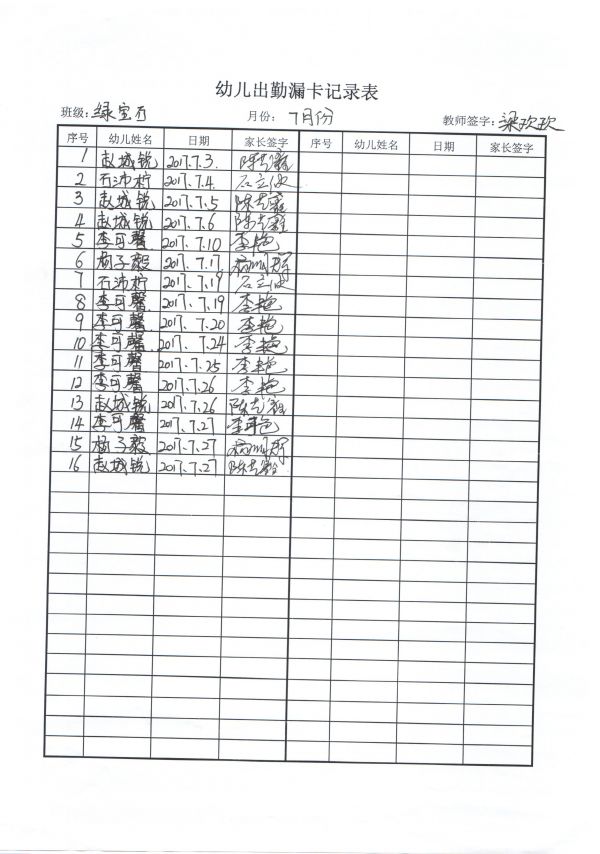 幼儿出勤漏卡记录表
班级: 绿宝石 月份: 7月份 教师签字: 梁欢欢
序号 幼儿姓名 日期 家长签字 序号 幼儿姓名 日期 家长签字
1 赵城锐 2017.7.3.
2 石沛柠 2017.7.4. 石立波
3 赵城锐 2017.7.5
4 赵城锐 2017.7.6
5 李可馨 2017.7.10 李艳
6 杨子毅 2017.7.17
7 石沛柠 2017.7.19 石立波
8 李可馨 2017.7.19 李艳
9 李可馨 2017.7.20 李艳
10 李可馨 2017.7.24 李艳
11 李可馨 2017.7.25 李艳
12 李可馨 2017.7.26 李艳
13 赵城锐 2017.7.26
14 李可馨 2017.7.27 李艳
15 杨子毅 2017.7.27
16 赵城锐 2017.7.27